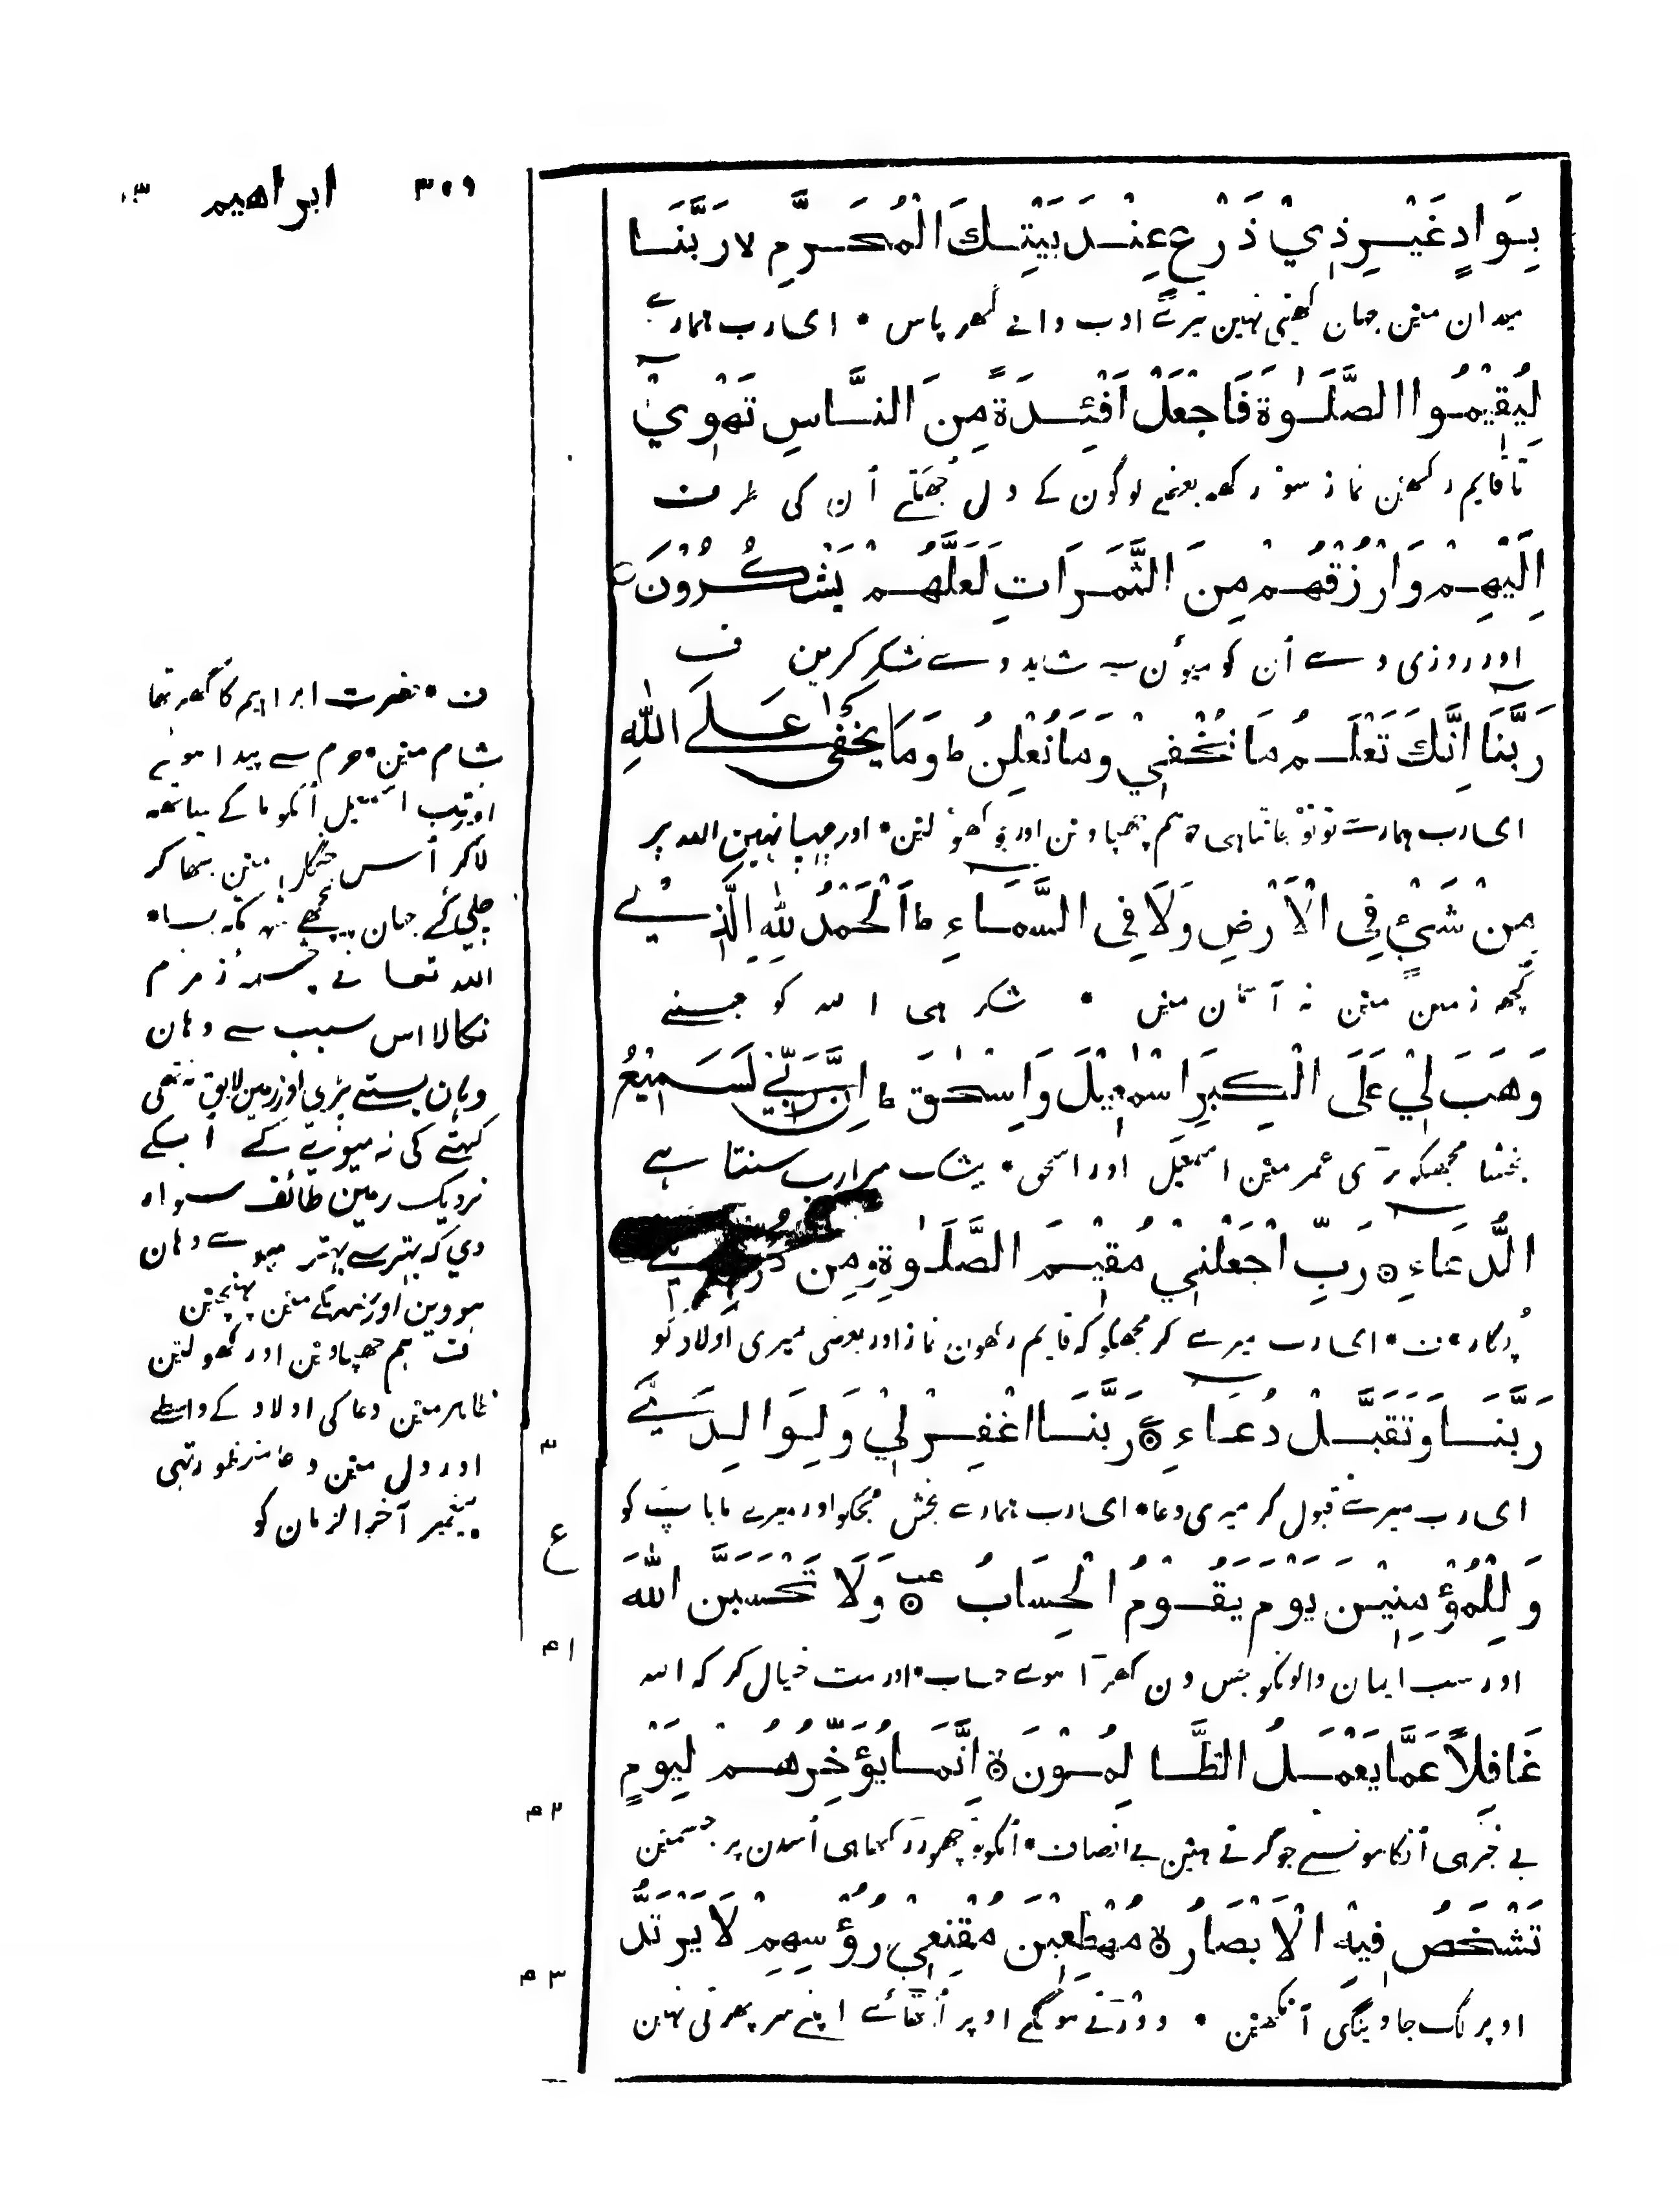 ۳۰۹ ابراهيم ۱۳
بِوَادٍ غَيْرِ ذِيْ ذَرْعٍ عِنْدَ بَيْتِكَ الْمُحَرَّمِ لا رَبَّنَا
میدان مین جہان کھیتی نہین تیرے ادب والے گھر پاس * ای رب ہمارے
لِيُقِيْمُوا الصَّلَوٰةَ فَاجْعَلْ اَفْئِدَةً مِّنَ النَّاسِ تَهْوِيْ
تا قایم رکھین نماز سو رکھ بعضے لوگون کے دل جھکتے اُن کی طرف
اِلَيْهِمْ وَارْزُقْهُمْ مِنَ الثَّمَرَاتِ لَعَلَّهُمْ يَشْكُرُوْنَ
اور روزی دے اُن کو میوُن سے شاید وے شکر کرین ف
رَبَّنَا اِنَّكَ تَعْلَمُ مَا نُخْفِيْ وَمَا نُعْلِنُ ط وَمَا يَخْفٰى عَلَى اللّٰهِ
ای رب ہمارے تو تو جانتا ہی جو ہم چھپاوین اور جو کھولین * اور چھپا نہین اللہ پر
مِنْ شَيْءٍ فِى الْاَرْضِ وَلَا فِى السَّمَاءِ ط اَلْحَمْدُ لِلّٰهِ الَّذِيْ
کچھ زمین مین نہ آسمان مین * شکر ہی اللہ کو جسنے
وَهَبَ لِيْ عَلَى الْكِبَرِ اسْمٰعِيْلَ وَاِسْحٰقَ ط اِنَّ رَبِّيْ لَسَمِيْعُ
بخشا مجھکو بڑی عمر مین اسمعیل اور اسحق * بیشک میرا رب سنتا ہے
الدُّعَاءِ ۝ رَبِّ اجْعَلْنِيْ مُقِيْمَ الصَّلَوٰةِ وَمِن ذُرِّيَّتِيْ
پُکار * ف * ای رب میرے کر مجھکو کہ قایم رکھون نماز اور بعضی میری اولاد کو
رَبَّنَا وَتَقَبَّلْ دُعَاءِ ۝ رَبَّنَا اغْفِرْ لِيْ وَلِوَالِدَيَّ
ای رب میرے قبول کر میری دعا * ای رب ہمارے بخش مجکو اور میرے ما باپ کو
وَلِلْمُؤْمِنِيْنَ يَوْمَ يَقُوْمُ الْحِسَابُ ۝ وَلَا تَحْسَبَنَّ اللّٰهَ
اور سب ایمان والونکو جس دن کھڑا ہووے حساب * اور مت خیال کر کہ اللہ
غَافِلًا عَمَّا يَعْمَلُ الظَّالِمُوْنَ ۝ اِنَّمَا يُؤَخِّرُهُمْ لِيَوْمٍ
بے خبر ہی اُنکامونسے جو کرتے ہین بے انصاف * اُنکو تو چھوڑ رکھا ہی اُسدن پر جسمین
تَشْخَصُ فِيْهِ الْاَبْصَارُ ۝ مُهْطِعِيْنَ مُقْنِعِيْ رُؤُسِهِمْ لَا يَرْتَدُّ
اوپر لگ جاوینگی آنکھین * دوڑتے ہونگے اوپر اُٹھائے اپنے سر پھرتی نہین
ف * حضرت ابراہیم کا گھر تھا
شام مین * حرم سے پیدا ہوئے
اسمٰعیل اُنکو ما کے ساتھ
لاکر اُس جنگل مین بٹھا کر
چلے گئے جہان پیچھے شہر مکہ بسا *
اللہ تعا نے چشمہ زمزم
نکالا اس سبب سے وہان
وہان بستے پڑی اور زمین لایق نہ تھی
کھیتی کی نہ میوے کے
نزدیک زمین طائف سواد
دی کہ بہتر سے بہتر میوے وہان
ہووین اور شہر مکے مین پہنچین
ف ہم چھپاوین اور کھولین
ظاہر مین دعا کی اولاد کے واسطے
اور دل مین دعا منظور تھی
پیغمبر آخر الزمان کو
۳
ع
۴۱
۴۲
۴۳